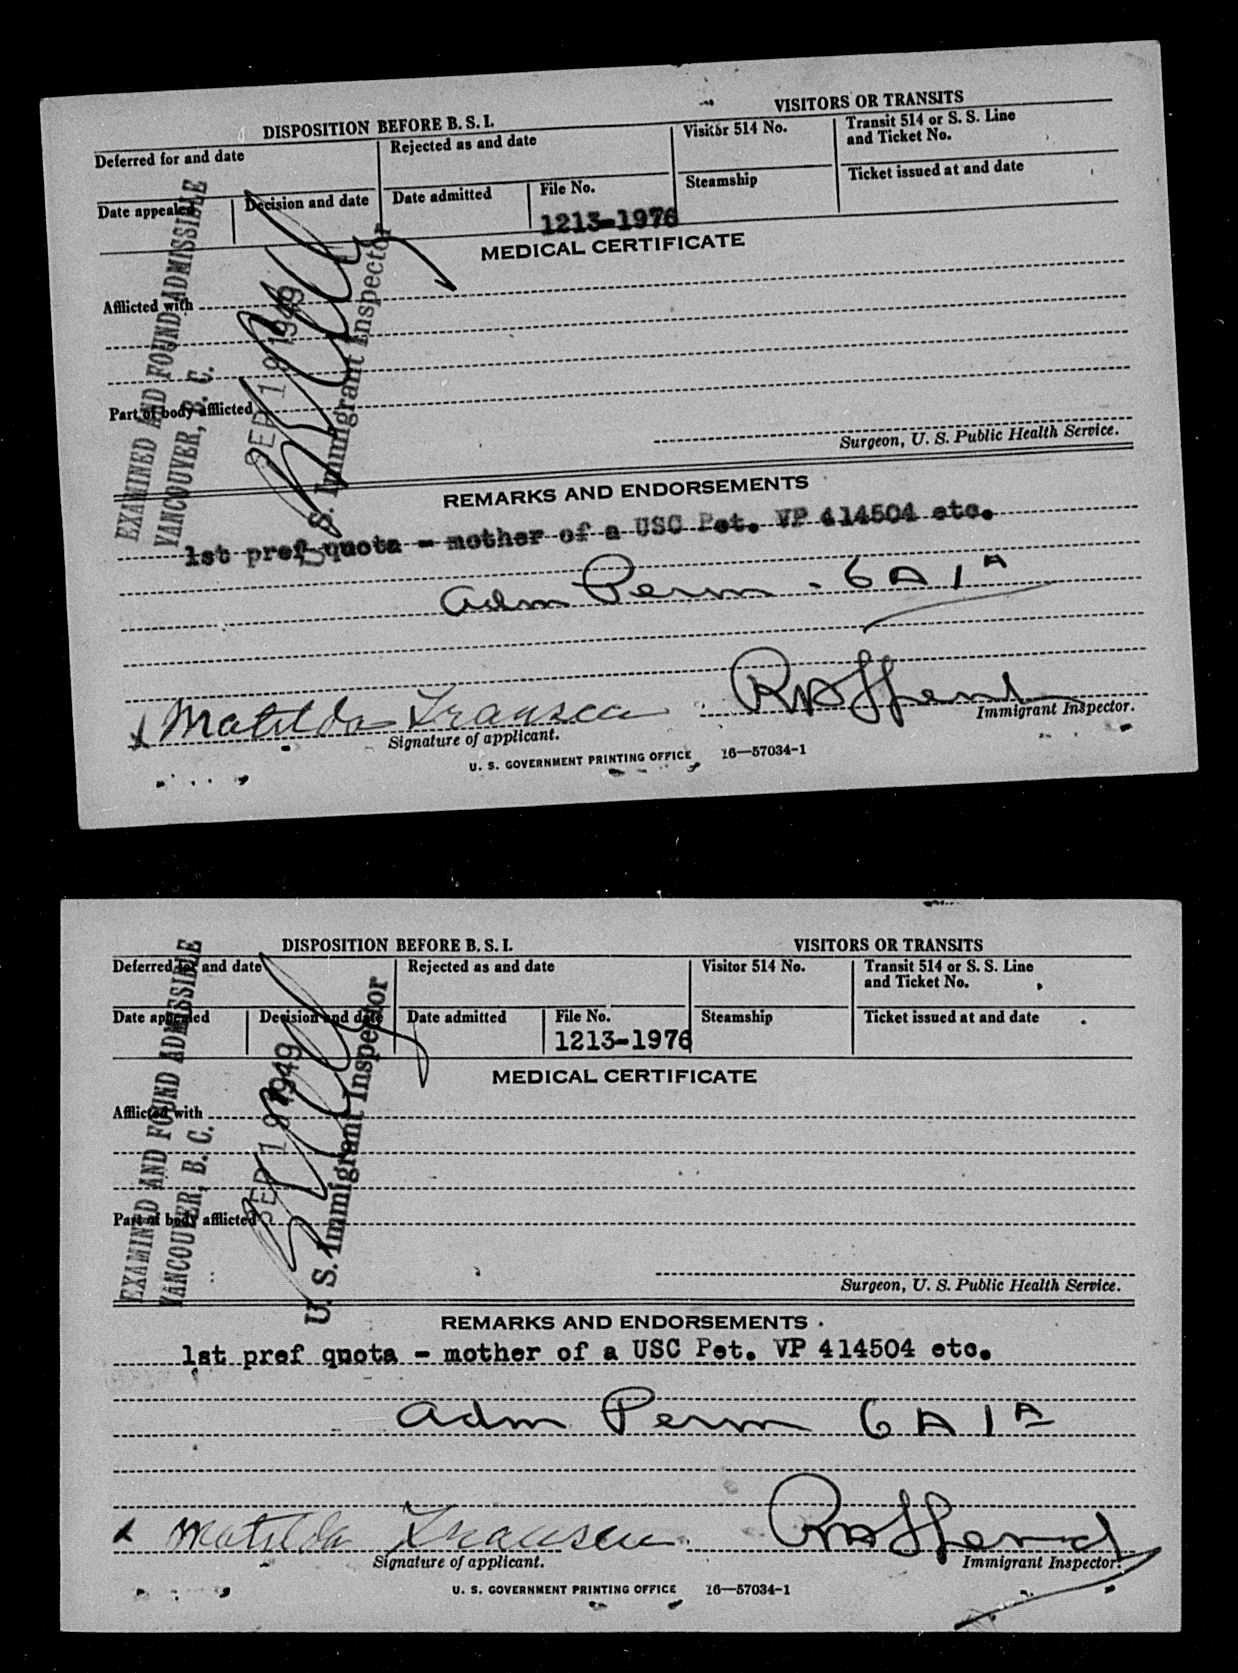 DISPOSITION BEFORE B. S. I.
VISITORS OR TRANSITS
Deferred for and date
Rejected as and date
Visitor 514 No.
Transit 514 or S. S. Line
and Ticket No.
Date appealed
Decision and date
Date admitted
File No.
1213-1976
Steamship
Ticket issued at and date
MEDICAL CERTIFICATE
Afflicted with
Part of body afflicted
EXAMINED AND FOUND ADMISSIBLE
VANCOUVER, B. C.
SEP 19 1949
U. S. Immigrant Inspector
Surgeon, U. S. Public Health Service.
REMARKS AND ENDORSEMENTS
1st pref quota - mother of a USC Pet. VP 414504 etc.
Adm Perm - 6 A 1 A
x Matilda Fransen
Signature of applicant.
Immigrant Inspector.
U. S. GOVERNMENT PRINTING OFFICE 16—57034-1
DISPOSITION BEFORE B. S. I.
VISITORS OR TRANSITS
Deferred for and date
Rejected as and date
Visitor 514 No.
Transit 514 or S. S. Line
and Ticket No.
Date appealed
Decision and date
Date admitted
File No.
1213-1976
Steamship
Ticket issued at and date
MEDICAL CERTIFICATE
Afflicted with
Part of body afflicted
EXAMINED AND FOUND ADMISSIBLE
VANCOUVER, B. C.
SEP 19 1949
U. S. Immigrant Inspector
Surgeon, U. S. Public Health Service.
REMARKS AND ENDORSEMENTS
1st pref quota - mother of a USC Pet. VP 414504 etc.
Adm Perm 6 A 1 A
x Matilda Fransen
Signature of applicant.
Immigrant Inspector.
U. S. GOVERNMENT PRINTING OFFICE 16—57034-1